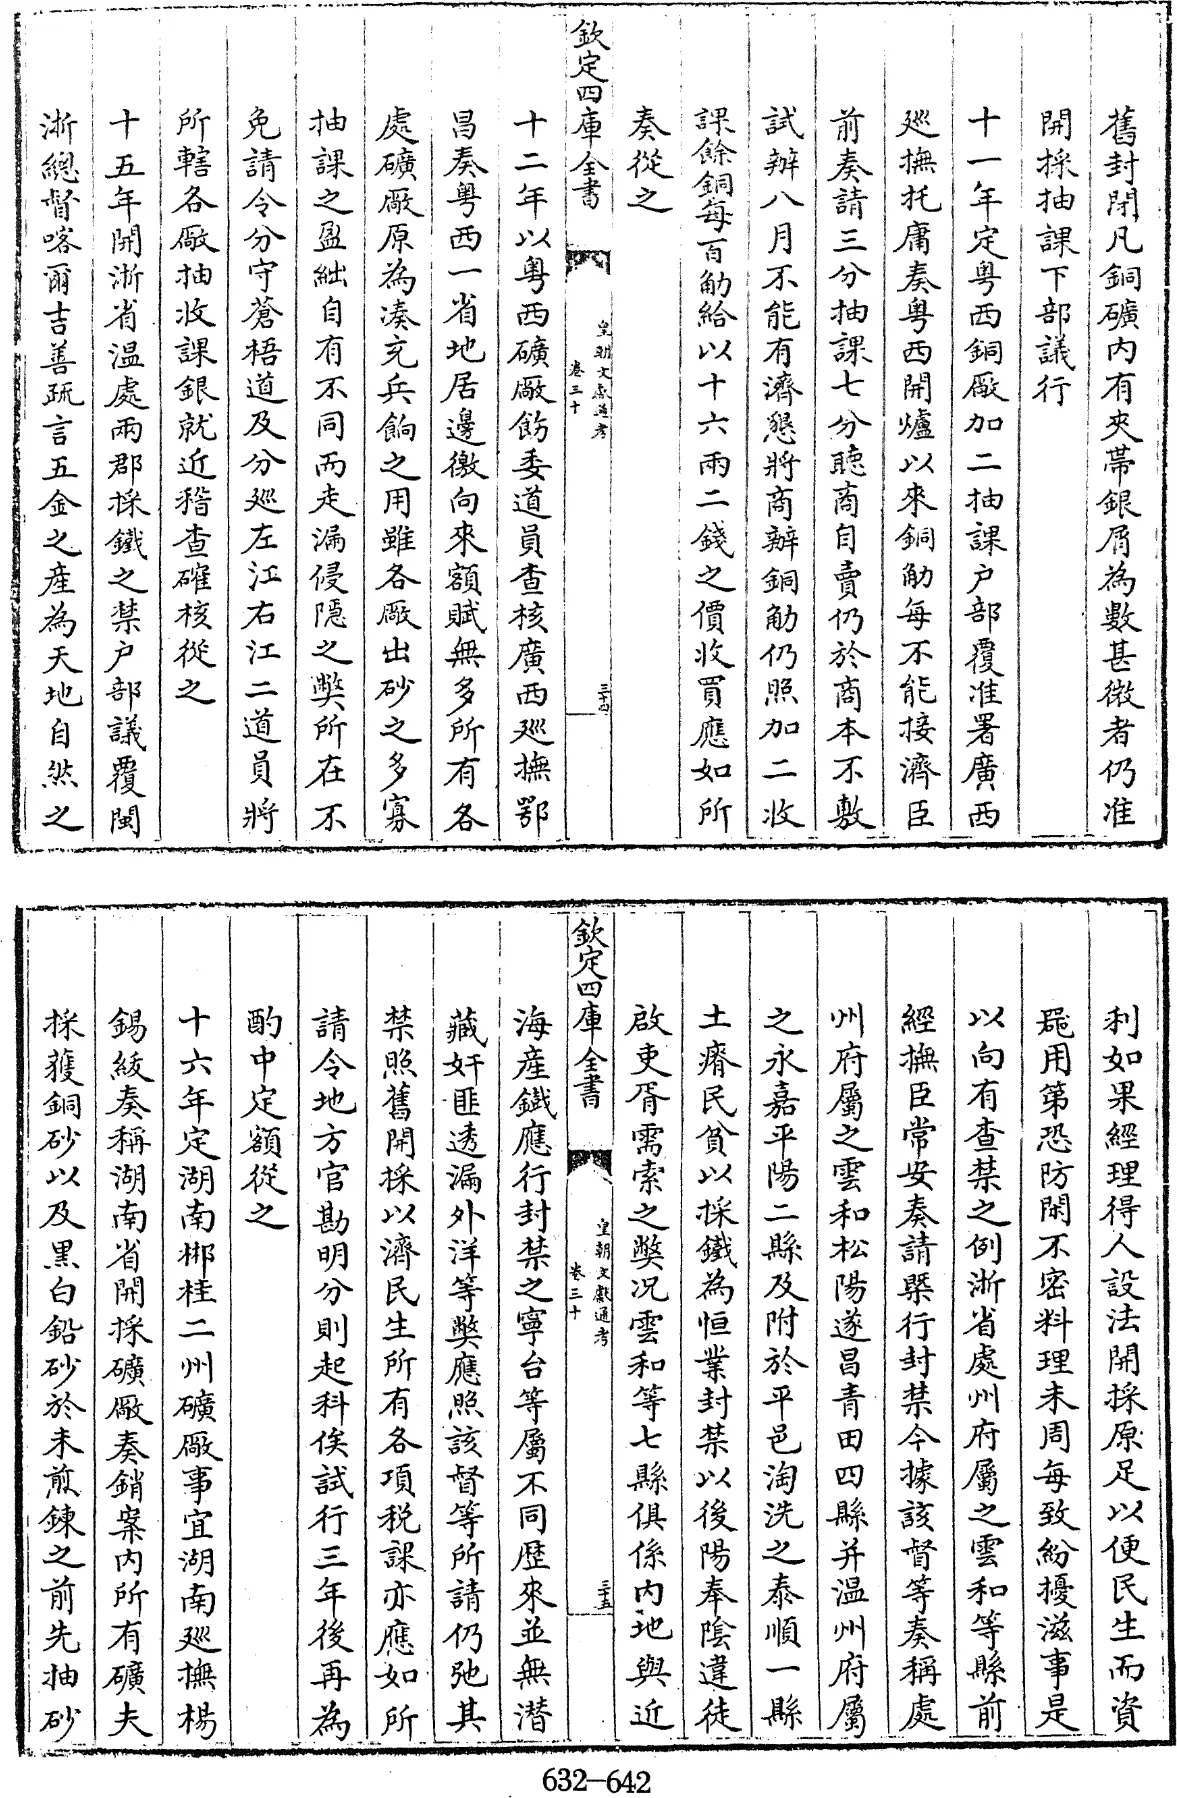 舊封閉凡銅礦内有夾帶銀屑為數甚微者仍准
開採抽課下部議行
十一年定粤西銅廠加二抽課户部覆准署廣西
廵撫托庸奏粤西開爐以來銅觔每不能接濟臣
前奏請三分抽課七分聴商自賣仍於商本不敷
試辦八月不能有濟懇將商辦銅觔仍照加二收
課餘銅每百觔給以十六兩二錢之價收買應如所
奏從之
欽定四庫全書
皇朝文獻通考
卷三十
三十四
十二年以粤西礦廠飭委道員查核廣西廵撫鄂
昌奏粤西一省地居邊徼向來額賦無多所有各
處礦廠原為凑充兵餉之用雖各廠出砂之多寡
抽課之盈絀自有不同而走漏侵隱之獘所在不
免請令分守蒼梧道及分廵左江右江二道員將
所轄各廠抽收課銀就近稽查確核從之
十五年開浙省溫處兩郡採鐵之禁户部議覆閩
浙總督喀爾吉善疏言五金之產為天地自然之
利如果經理得人設法開採原足以便民生而資
器用第恐防閑不密料理未周每致紛擾滋事是
以向有查禁之例浙省處州府屬之雲和等縣前
經撫臣常安奏請槩行封禁今據該督等奏稱處
州府屬之雲和松陽遂昌青田四縣并温州府屬
之永嘉平陽二縣及附於平邑淘洗之泰順一縣
土瘠民貧以採鐵為恒業封禁以後陽奉陰違徒
啟吏胥需索之獘况雲和等七縣俱係内地與近
欽定四庫全書
皇朝文獻通考
卷三十
三十五
海產鐵應行封禁之寧台等屬不同歷來並無潛
藏奸匪透漏外洋等獘應照該督等所請仍弛其
禁照舊開採以濟民生所有各項税課亦應如所
請令地方官勘明分則起科俟試行三年後再為
酌中定額從之
十六年定湖南郴桂二州礦廠事宜湖南廵撫楊
錫紱奏稱湖南省開採礦廠奏銷案内所有礦夫
採獲銅砂以及黒白鉛砂於未煎鍊之前先抽砂
632-642